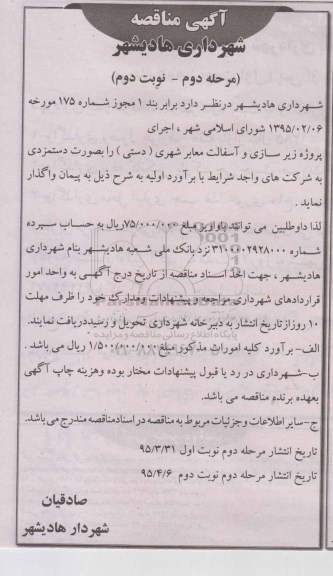 آگهی مناقصه
شهرداری هادیشهر
(مرحله دوم - نوبت دوم)
شهرداری هادیشهر درنظر دارد برابر بند ۱ مجوز شماره ۱۷۵ مورخه
۱۳۹۵/۰۲/۰۶ شورای اسلامی شهر ، اجرای
پروژه زیر سازی و آسفالت معابر شهری ( دستی ) را بصورت دستمزدی
به شرکت های واجد شرایط با برآورد اولیه به شرح ذیل به پیمان واگذار
نماید .
لذا داوطلبین می توانند باواریز مبلغ ۷۵/۰۰۰/۰۰۰ریال به حساب سپرده
شماره ۳۱۰۰۰۰۲۹۲۸۰۰۰ نزد بانک ملی شعبه هادیشهر بنام شهرداری
هادیشهر ، جهت اخذ اسناد مناقصه از تاریخ درج آگهی به واحد امور
قراردادهای شهرداری مراجعه و پیشنهادات ومدارک خود را ظرف مهلت
۱۰ روز از تاریخ انتشار به دبیرخانه شهرداری تحویل و رسید دریافت نمایند.
الف- برآورد کلیه امورات مذکور مبلغ ۱/۵۰۰/۰۰۰/۰۰۰ ریال می باشد .
ب-شهرداری در رد یا قبول پیشنهادات مختار بوده وهزینه چاپ آگهی
بعهده برنده مناقصه می باشد.
ج-سایر اطلاعات و جزئیات مربوط به مناقصه در اسناد مناقصه مندرج می باشد.
تاریخ انتشار مرحله دوم نوبت اول ۹۵/۳/۳۱
تاریخ انتشار مرحله دوم نوبت دوم ۹۵/۴/۶
صادقیان
شهردار هادیشهر